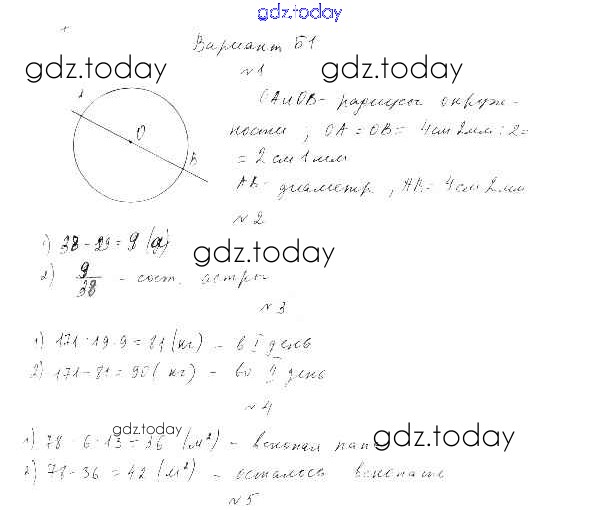 gdz.today
Вариант Б1
gdz.today gdz.today
№1
A
O
B
OA и OB - радиусы окруж-
ности, OA = OB = 4см 2мм : 2 =
= 2 см 1 мм
AB - диаметр, AB = 4см 2мм
№2
1) 38 - 29 = 9
gdz.today
2) 9/38 - сост. астры
№3
1) 171 : 19 · 9 = 81 (кг) - в I день
2) 171 - 81 = 90 (кг) - во II день
№4
gdz.today gdz.today
1) 78 : 13 = 36 (м²) - вскопал папа
2) 78 - 36 = 42 (м²) - осталось вскопать
№5